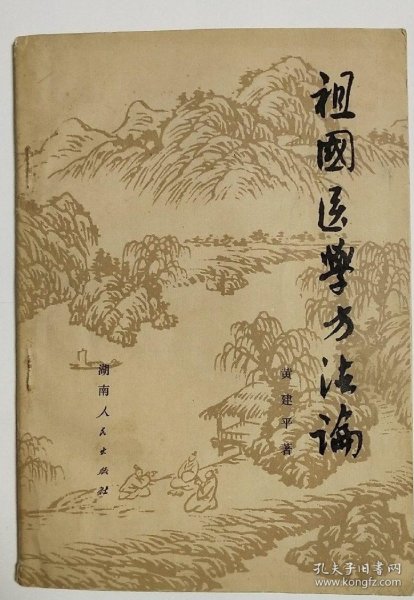 祖國医學方法論
黄建平著
湖南人民出版社
孔夫子旧书网
www.kongfz.com